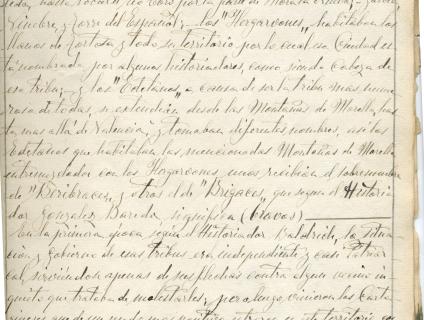 por la parte de Morella
y Torre del Español; los "Hergavones," habitaban los
llanos de Tortosa y todo su territorio, por lo cual esa Ciudad es
ta nombrada por algunos historiadores, como siendo Cabeza de
esa tribu; y los "Edetanos," a causa de ser la tribu mas nume
rosa de todas, se estendian desde las Montañas de Morella, has
ta mas allá de Valencia, y tomaban diferentes nombres, asi los
Edetanos que habitaban las mencionadas Montañas de Morella
con los Hergavones, unos recibian el sobrenombre
de "Beribraces", y otros el de "Brigaces", que segun el Historia
dor Gonzalez Barcia, significa (bravos)
En la primera epoca según el Historiador la situa
cion y Gobierno de esas tribus era independiente y casi Patriar
cal, sirviéndose apenas de sus flechas contra algun vecino in
quieto que trataba de molestarles; pero luego vinieron los Carta
gineses que de un modo mas